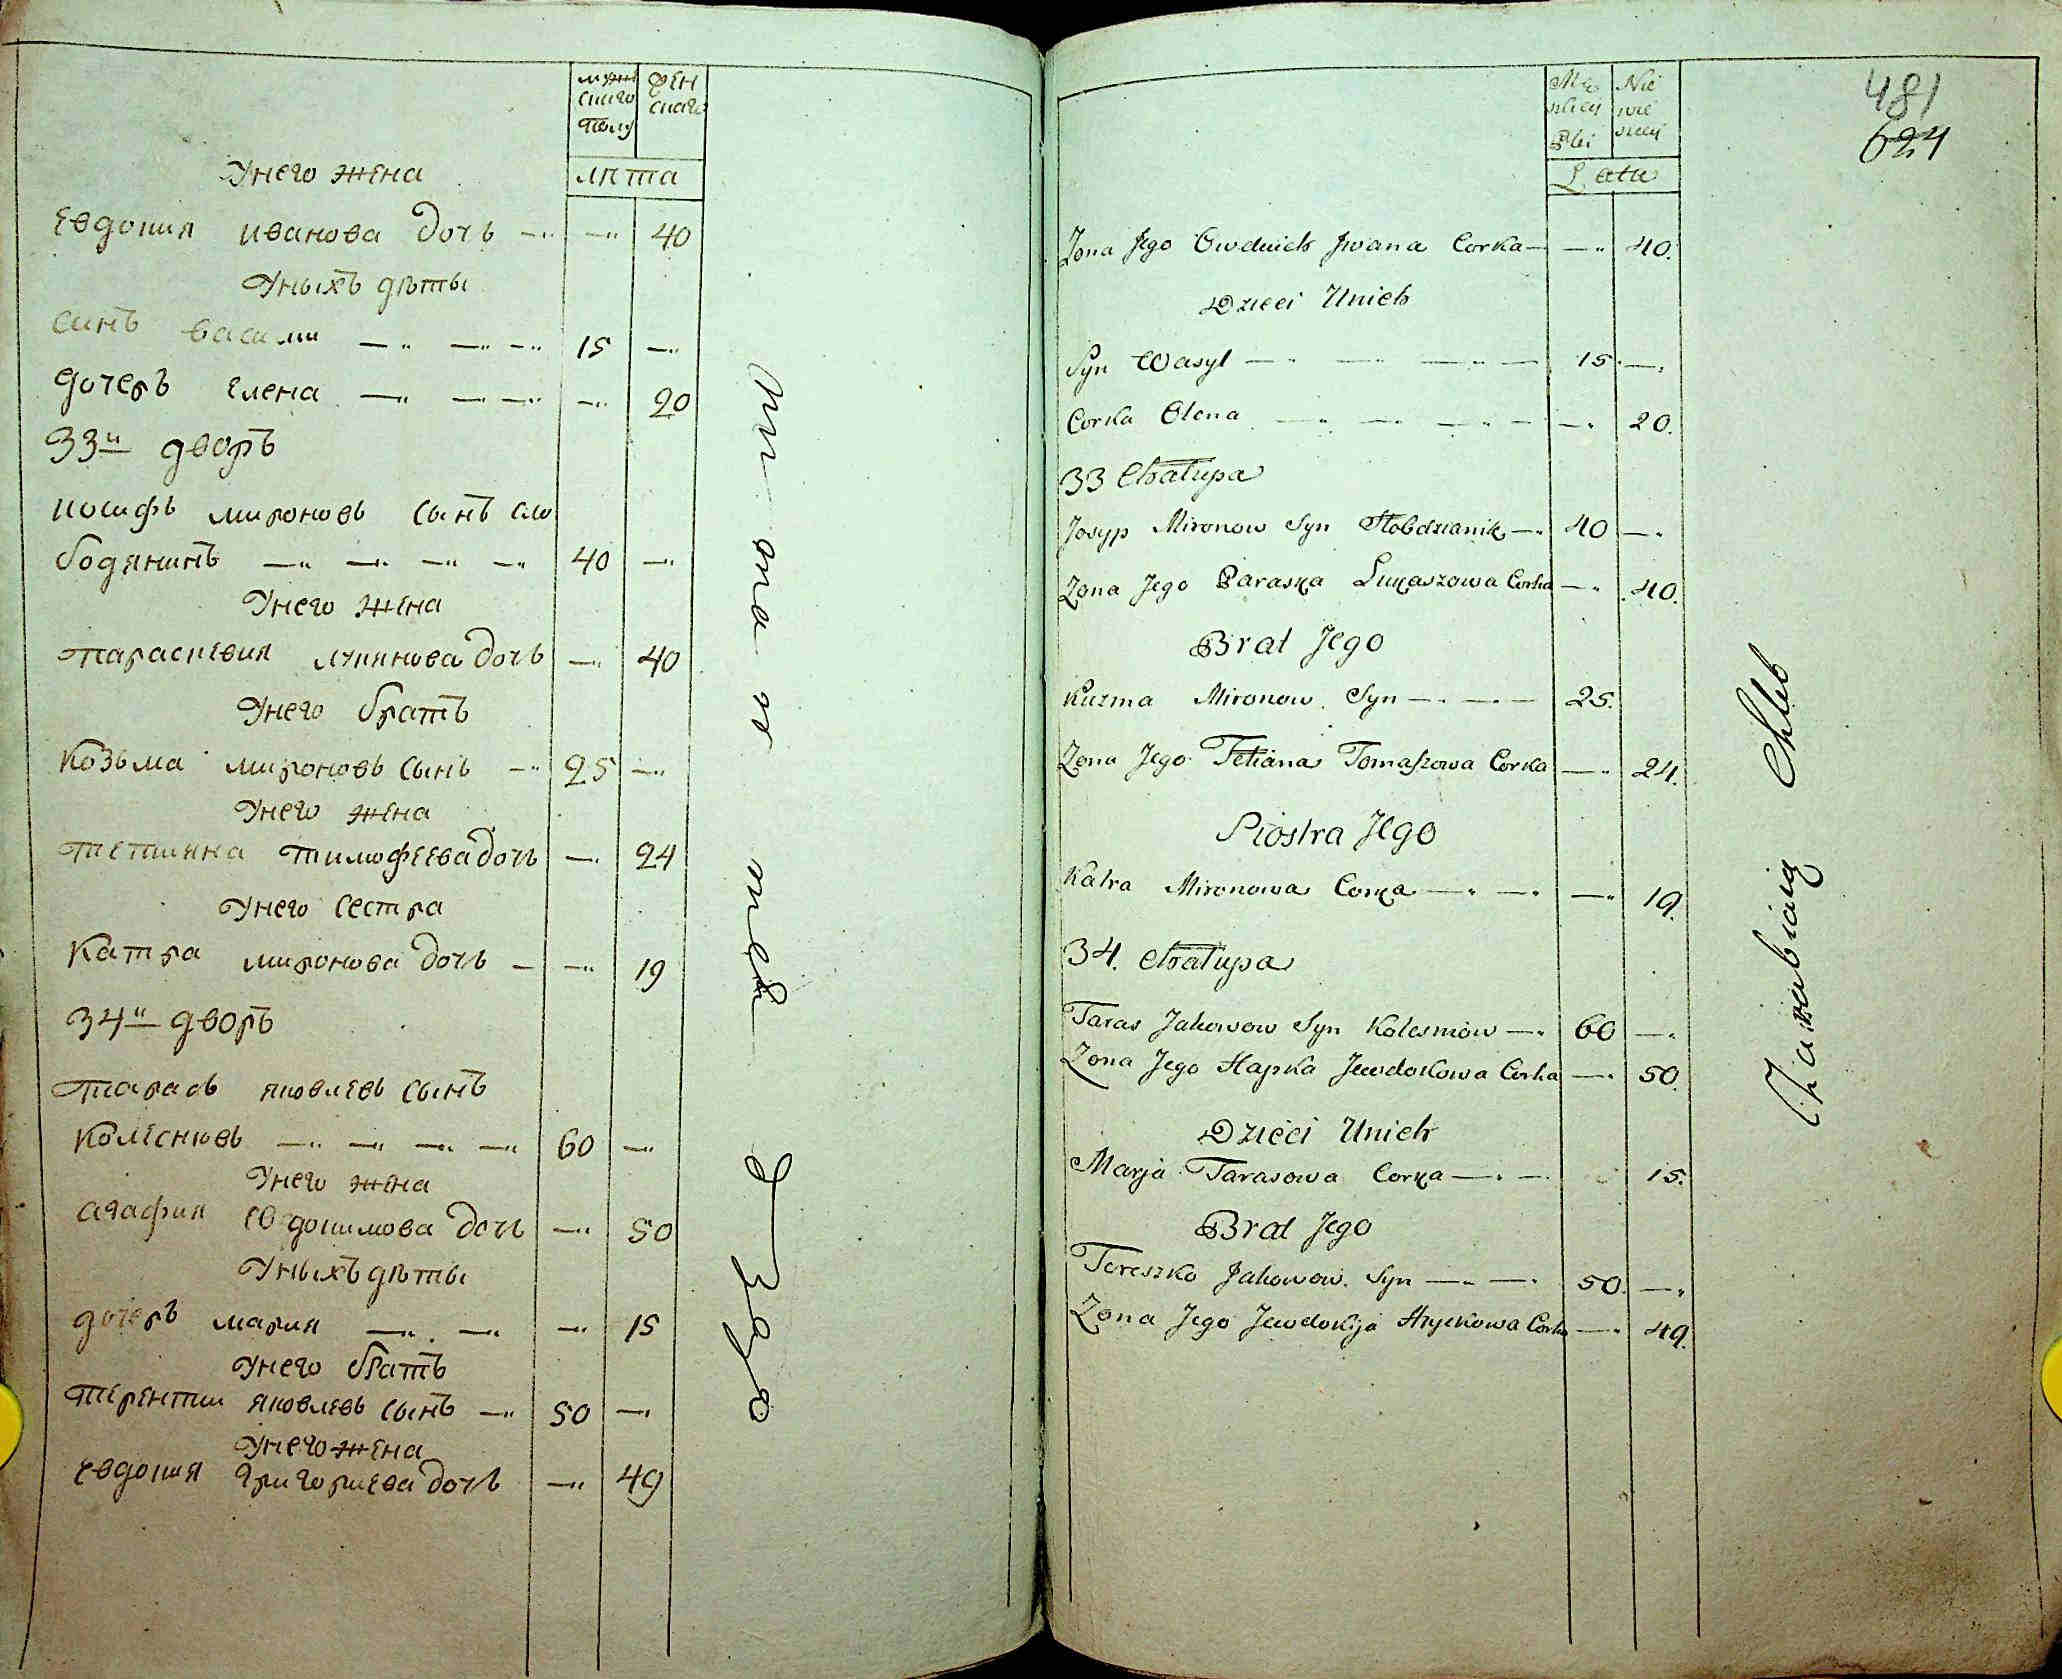 мужескаго полу
женскаго
лѣта
Унего жена
Евдокия иванова дочь —„ —„ 40
Уныхъ дѣты
синъ василии —„ —„ —„ 15 —„
дочеръ елена —„ —„ —„ —„ 20
33й дворъ
иосифъ мироновъ сынъ сло
бодянинъ —„ —„ —„ —„ 40 —„
Унего жена
параскевия лукянова дочь —„ 40
Унего братъ
Козьма мироновъ сынъ —„ 25 —„
Унего жена
тетияна тимофеева дочь —„ 24
Унего сестра
Катра миронова дочь — —„ 19
34й дворъ
тарасъ яковлевъ сынъ
колесниовъ —„ —„ —„ —„ 60 —„
Унего жена
агафия евдокимова дочь —„ 50
Уныхъ дѣты
дочеръ мария —„ —„ —„ 15
Унего братъ
терентии яковлевъ сынъ —„ 50 —„
Унего жена
евдокия григориева дочь —„ 49
481
624
Męzkiey Płci
Niewieściey
Lata
Zona Jego Owdiuch Jwana Corka — —„ 40.
Dzieci Unich
Syn Wasyl —„ —„ —„ — 15 —„
Corka Olena —„ —„ —„ — —„ 20.
33 Chałupa
Josyp Mironow Syn Słobdzianik —„ 40 —„
Zona Jego Paraska Lukaszowa Corka —„ 40.
Brat Jego
Kuzma Mironow Syn —„ —„ — 25.
Zona Jego Tetiana Tomaszowa Corka —„ 24.
Siostra Jego
Katra Mironowa Corka —„ —„ —„ 19.
34. Chałupa
Taras Jakowow Syn Kolesniow —„ 60 —„
Zona Jego Hapka Jewdokowa Corka —„ 50.
Dzieci Unich
Marja Tarasowa Corka —„ — 15.
Brat Jego
Tereszko Jakowow Syn —„ —„ 50. —„
Zona Jego Jewdokija Hryckowa Corka —„ 49.
Zarabiaią Chleb